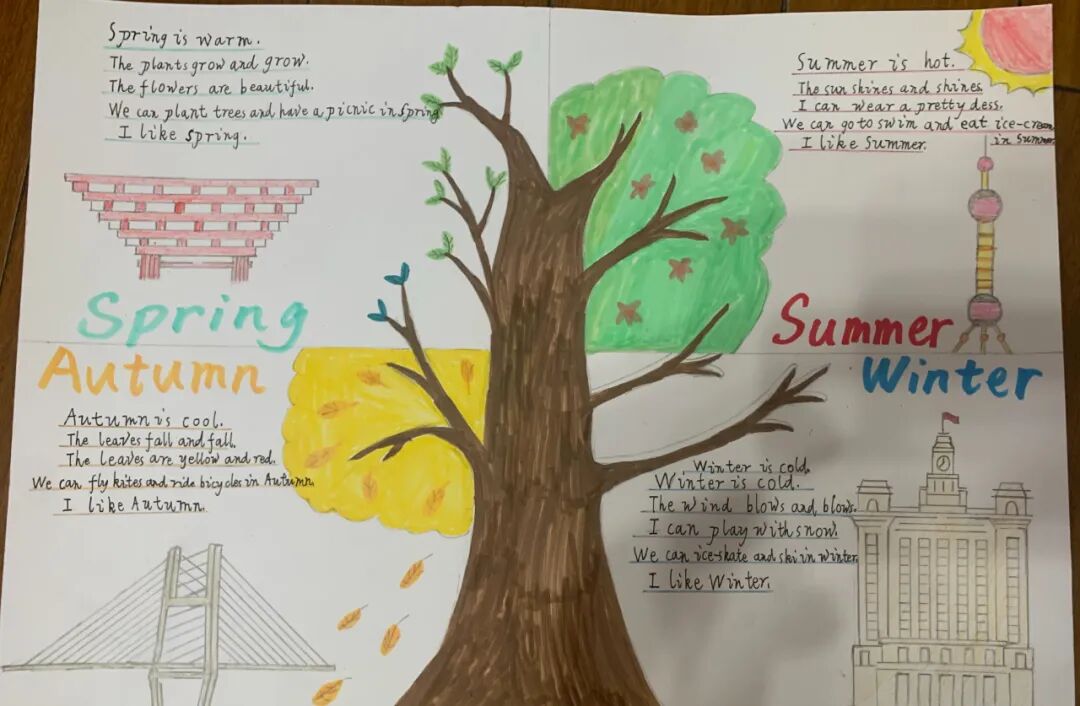 Spring is warm.
The plants grow and grow.
The flowers are beautiful.
We can plant trees and have a picnic in spring
I like spring.
Spring
Summer is hot.
The sun skines and shines.
I can wear a pretty dess.
We can go to swim and eat ice-cream
in Summer.
I like Summer.
Summer
Autumn
Autumn is cool.
The leaves fall and fall.
The leaves are yellow and red.
We can fly kites and ride bicycles in Autumn.
I like Autumn.
Winter
Winter is cold.
Winter is cold.
The wind blows and blows.
I can play with snow.
We can ice-skate and ski in winter.
I like Winter.